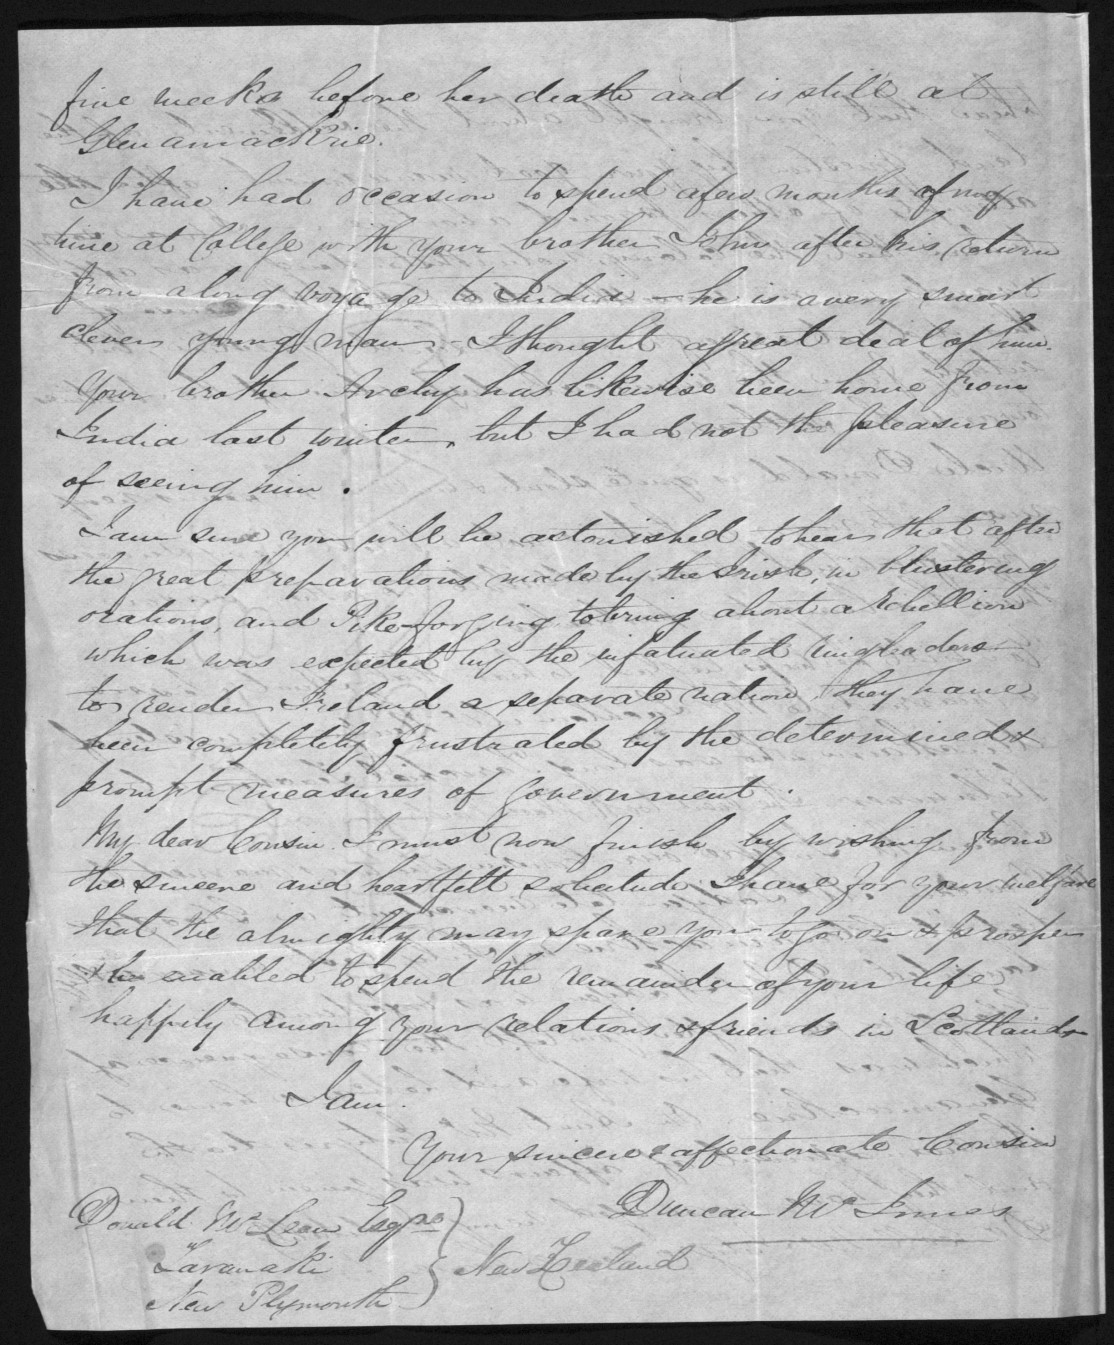 five weeks before her death and is still at
Glenamackrie.
I have had occasion to spend a few months of my
time at College with your brother John after his return
from a long voyage to India - he is a very smart
clever young man - I thought a great deal of him.
Your brother Archy has likewise been home from
India last winter, but I had not the pleasure
of seeing him.
I am sure you will be astonished to hear that after
the great preparations made by the Irish, in blustering
orations, and Pike-forging to bring about a rebellion
which was expected by the infatuated ringleaders
to render Ireland a separate nation they have
been completely frustrated by the determined &
prompt measures of government.
My dear Cousin I must now finish by wishing from
the sincere and heartfelt solicitude I have for your welfare
that the almighty may spare you to go on & prosper
& be enabled to spend the remainder of your life
happily among your relations & friends in Scotland
I am
Your sincere & affectionate Cousin
Duncan Mc Innes
Donald Mc Lean Esqre
Taranaki
New Plymouth
New Zealand